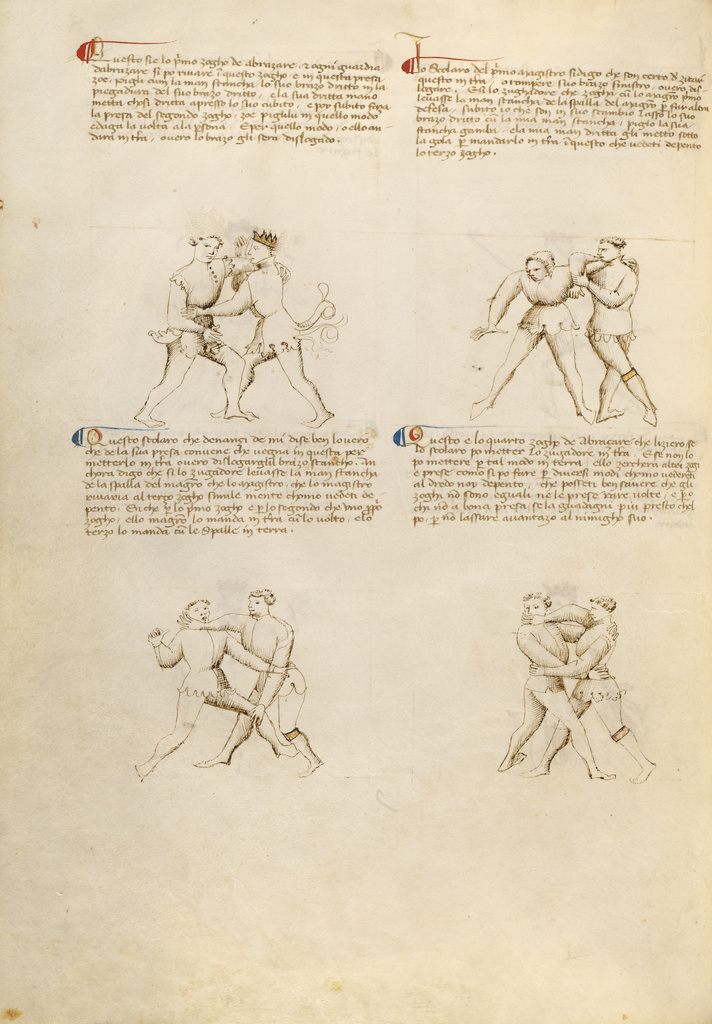 Questo sie lo p̃mo zogho de abrazare, e ogni guardia
dabrazare si po rivare ĩ questo zogho, e in questa presa
zoe, pigli cum la man stancha lo suo brazo dritto in la
piegadura del suo brazo dritto, e la sua dritta mano
metta chosi dritta apresso lo suo cubito, e poy subito faza
la presa del segondo zogho, zoe piglilu in quello modo
e daga la volta ala p̃sona. E per quello modo, o ello an
dara in tr̃a, overo lo brazo gli sera dislogado.
Lo Scolaro del p̃mo magistro si digo che son certo di zitar
questo in tr̃a, o rompere suo brazo sinistro, overo dis
logare. E si lo zugadore che zogha cũ lo magistro p̃mo
levasse la man stancha de la spalla del magistro p̱ fur altra
defesa, subito io che son in suo scambio lasso lo suo
brazo dritto cũ la mia man stancha, e piglo la sua
stancha gamba, e la mia man dritta gli metto sotto
la gola p̱ mandarlo in tr̃a ĩ questo che vedeti depento
lo terzo zogho.
Questo scolaro che denanci de mi dise ben lo vero
che de la sua presa convene che vegna in questa per
metterlo in tr̃a overo dislogargli l brazo stancho. An
chora digo che si lo zugadore levasse la man stancha
de la spalla del magistro che lo magistro, che lo magistro
rivaria al terzo zogho similemente chomo vedeti de
pento. Siche p̱ lo p̃mo zogho e p̱ lo segondo che uno p̱p̱o
zogho, ello magistro lo manda in tr̃a cũ lo volto, e lo
terzo lo manda cũ le spalle in terra.
Questo e lo quarto zogho de abraçare che liziero se
lo scolaro po metter lo zugadore in tr̃a. E se non lo
po mettere p̱ tal modo in terra, ello zercherà altri zogi
e prese como si po fare p̱ diversi modi chomo vedereti
al dredo noy depento, che posseti ben savere che gli
zoghi nõ sono eguali ne le prese rare volte, e p̱o
chi nõ a bona presa, se la guadagni piu presto chel
po, p̱ nõ lassare avantazo al nimigho suo.